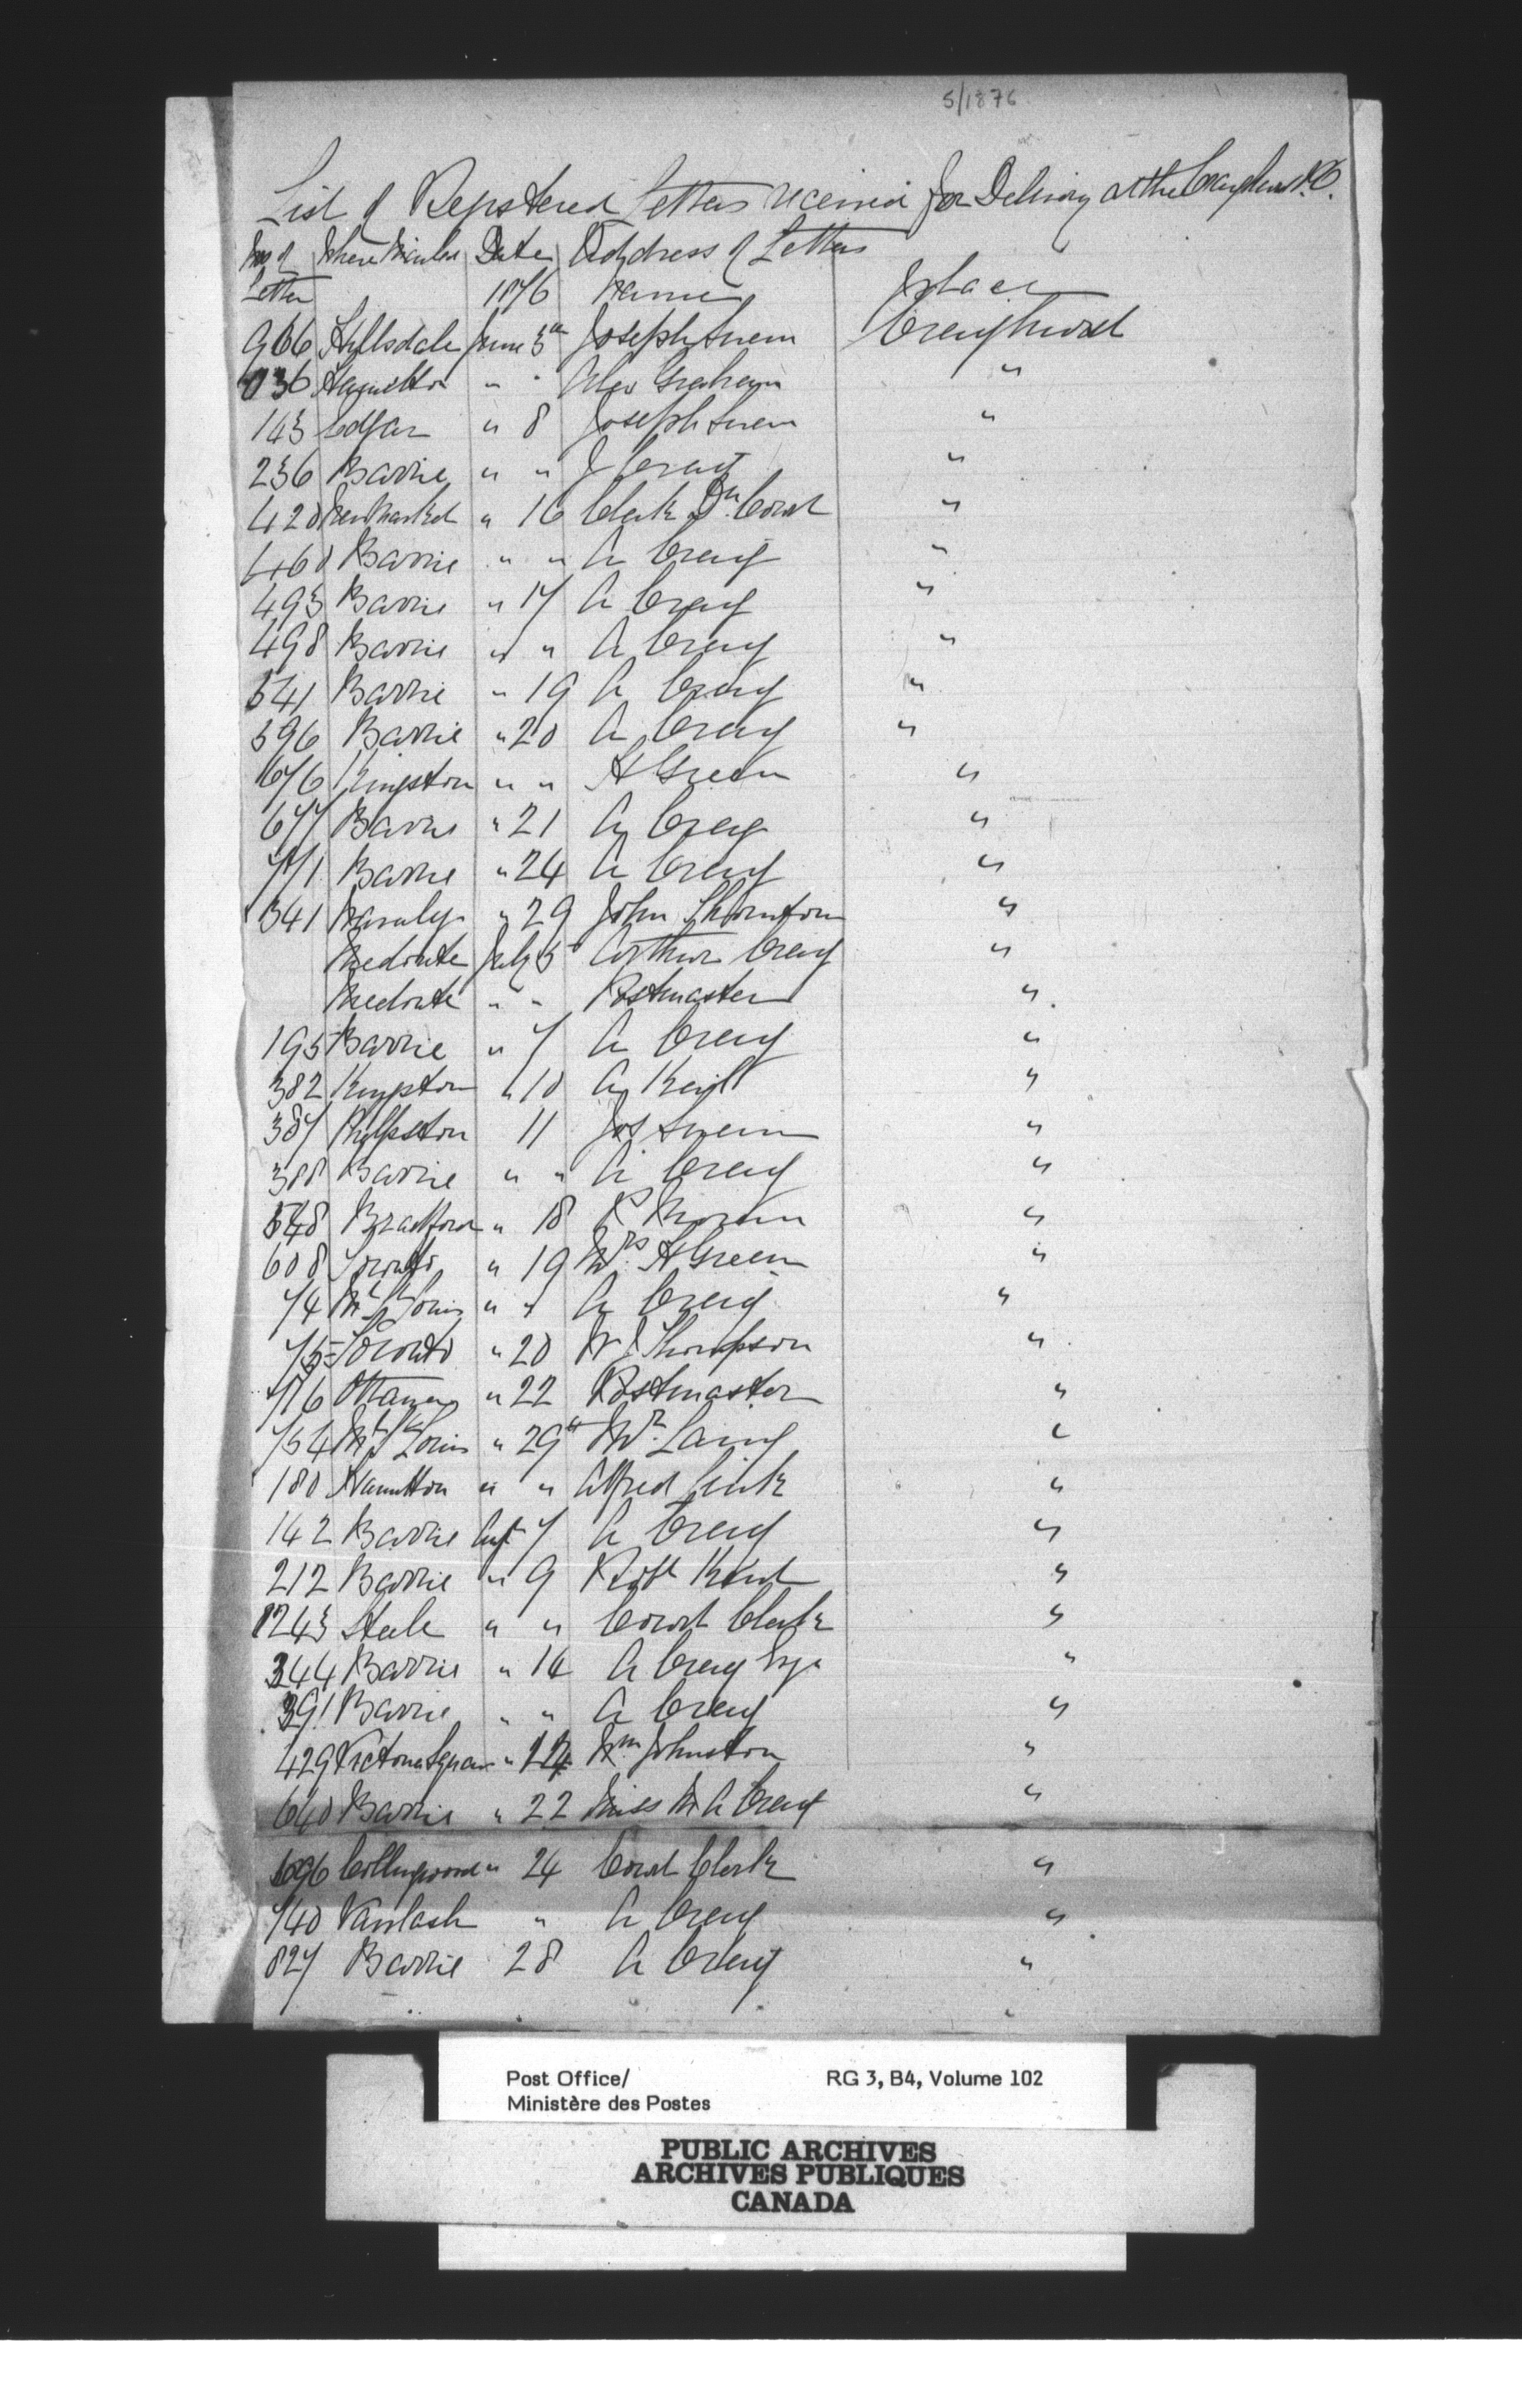 5/1876
List of Registered Letters received for Delivery at the Craighurst P.O.
No of Where Mailed Date Address of Letters
Letter 1876 Name Place
966 Hillsdale June 3 Joseph Craighurst
036 Hamilton " " Alex Graham "
143 Edgar " 8 Joseph "
236 Barrie " " J Craig "
420 Newmarket " 16 Clerk Dn Court "
460 Barrie " " A Craig "
493 Barrie " 17 A Craig "
498 Barrie " " A Craig "
541 Barrie " 19 A Craig "
596 Barrie " 20 A Craig "
676 Kingston " " H Green "
677 Barrie " 21 A Craig "
771 Barrie " 24 A Craig "
341 " 29 John Thornton "
Medonte July 5 Arthur Craig "
Medonte " " Postmaster "
195 Barrie " 7 A Craig "
382 Kingston " 10 A "
387 Phelpston 11 Jos "
388 Barrie " " A Craig "
548 Bradford " 18 "
608 Toronto " 19 Mrs H Green "
74 Mt St Louis " " A Craig "
75 Toronto " 20 W J Thompson "
716 Ottawa " 22 Postmaster "
754 Mt St Louis " 29 Mr Laing "
180 Hamilton " " Alfred "
142 Barrie Aug 7 A Craig "
212 Barrie " 9 Robt "
1243 Steele " " Court Clerk "
344 Barrie " 14 A Craig Esq "
391 Barrie " " A Craig "
429 Victoria Square " Wm Johnston "
640 Barrie " 22 Miss M A Craig "
696 Collingwood " 24 Court Clerk "
740 " A Craig "
827 Barrie 28 A Craig "
Post Office/ RG 3, B4, Volume 102
Ministère des Postes
PUBLIC ARCHIVES
ARCHIVES PUBLIQUES
CANADA